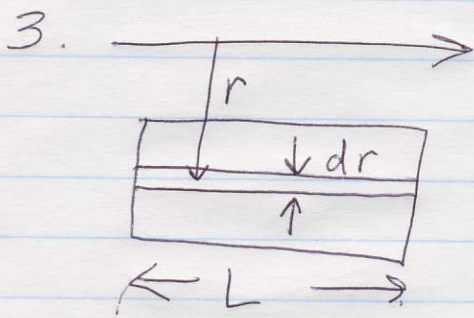 3.
r
dr
L